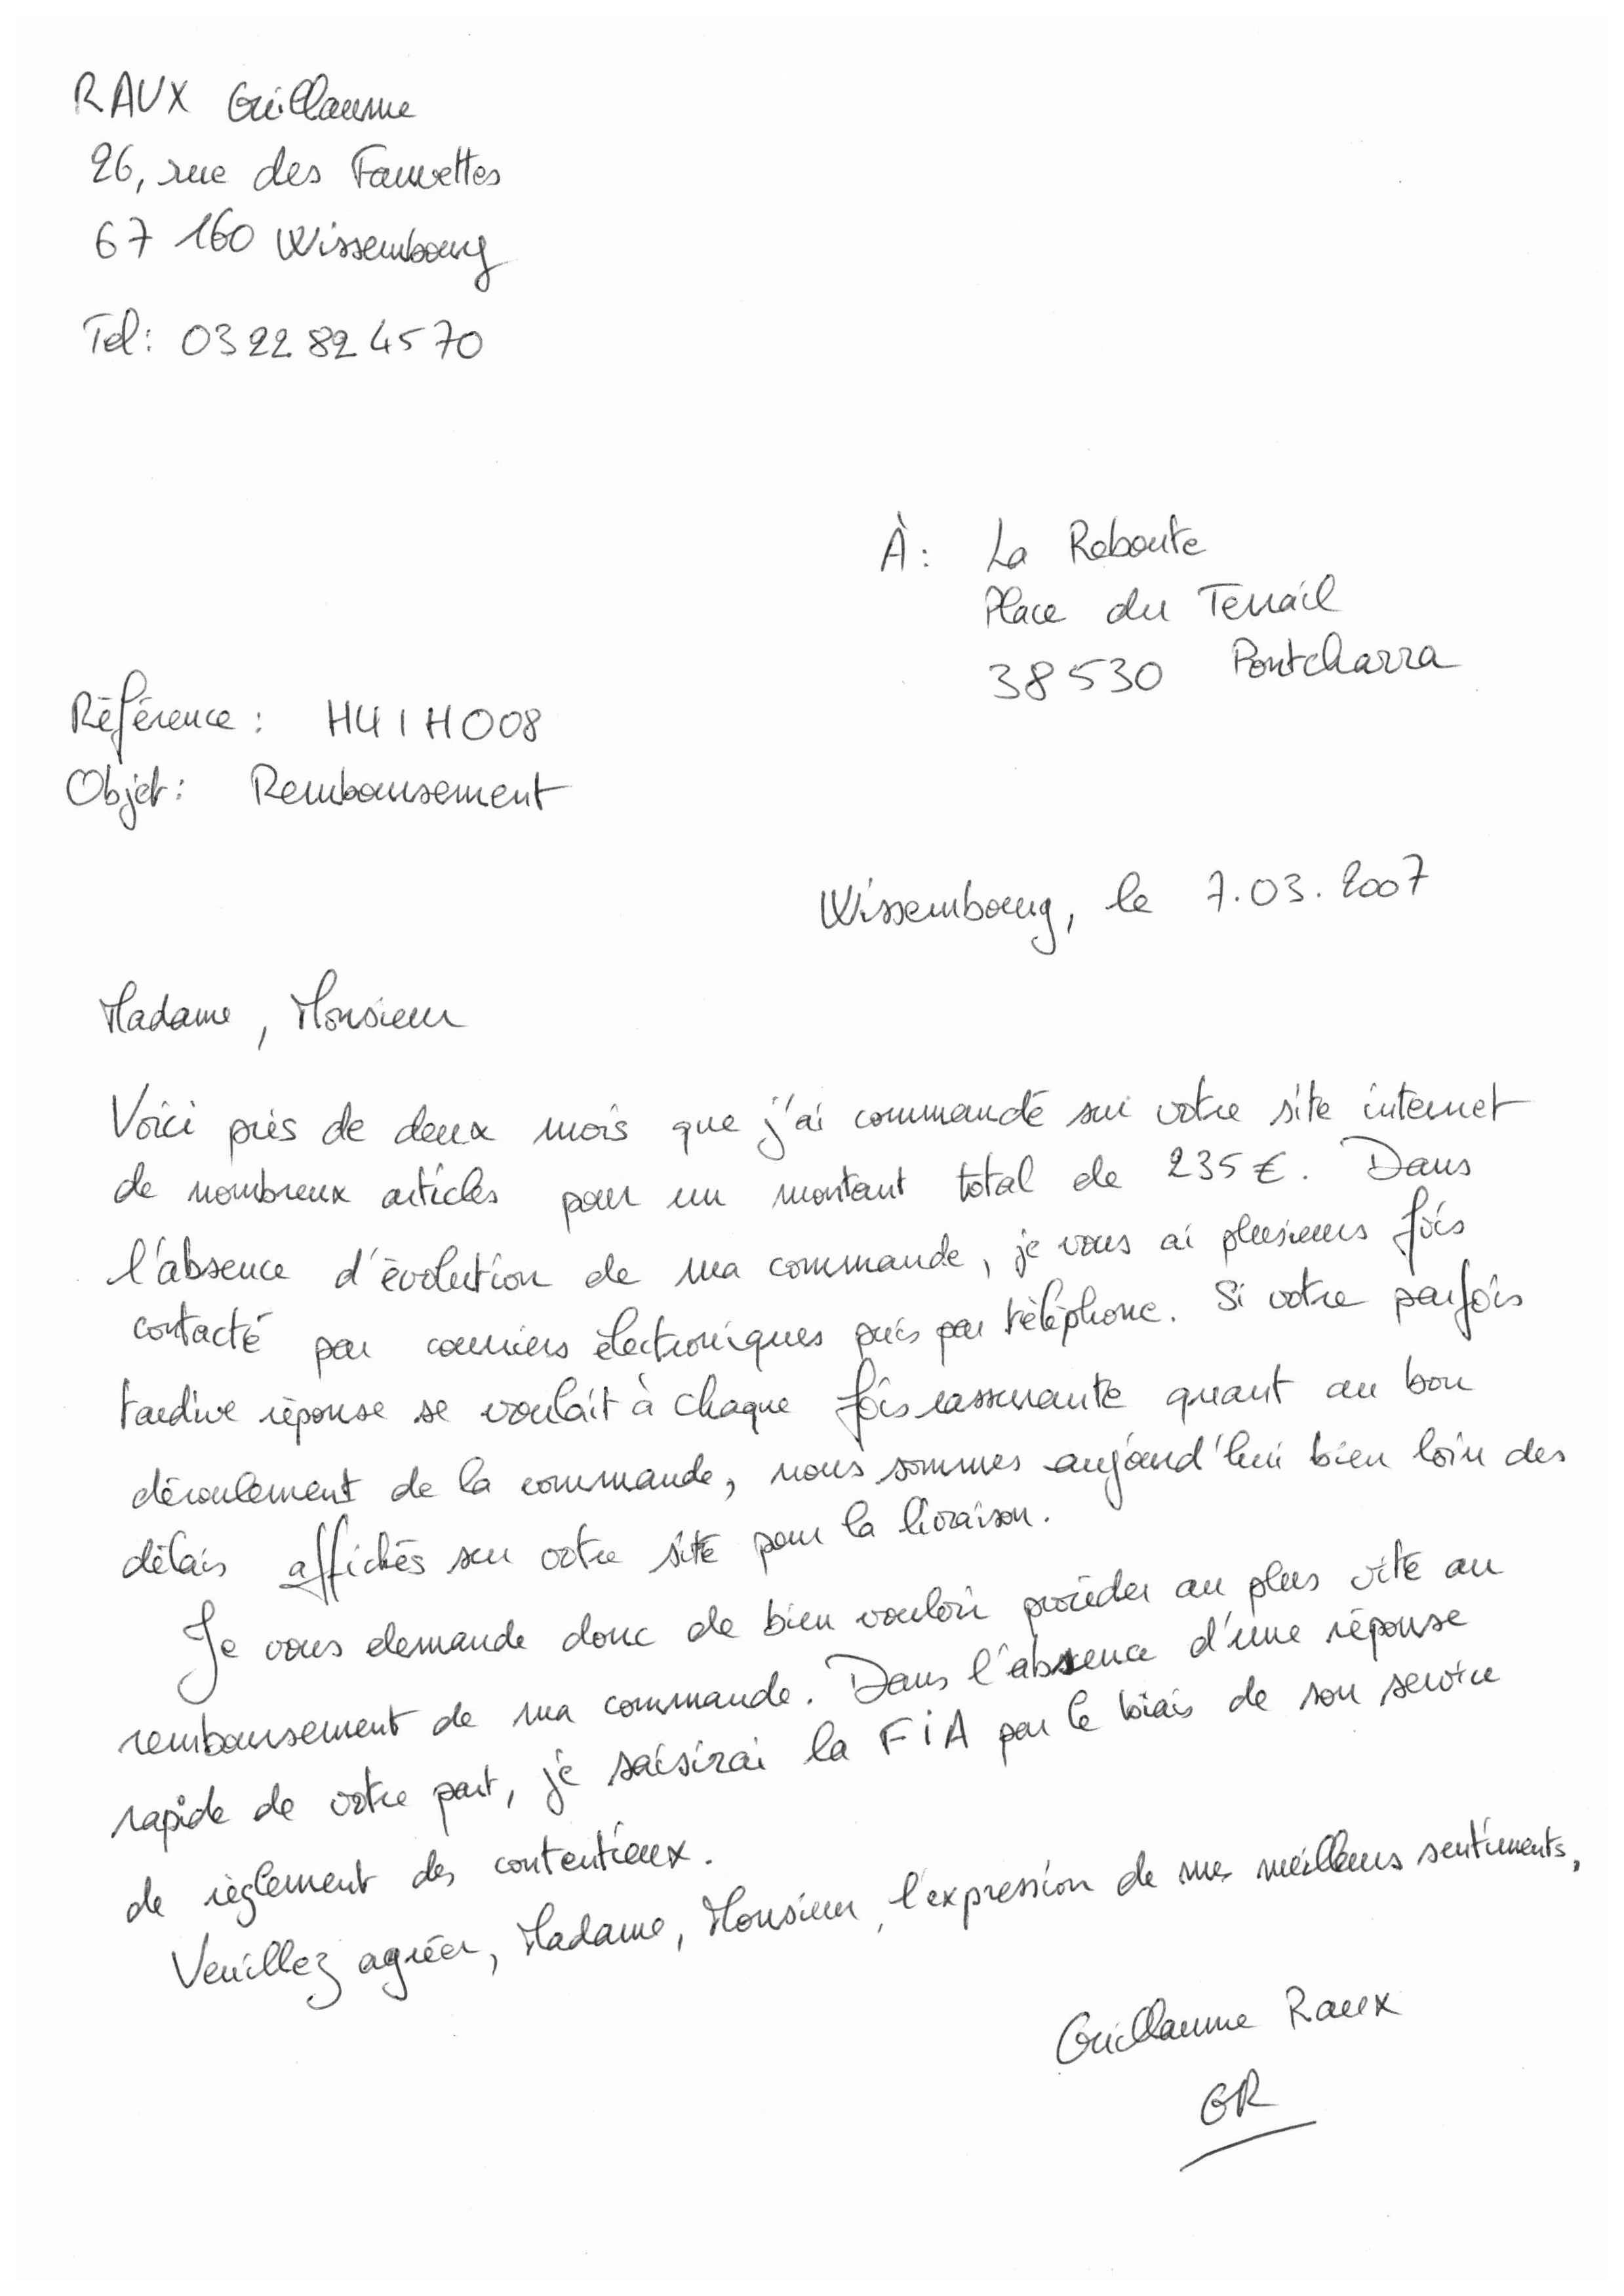 RAUX Guillaume
26, rue des Fauvettes
67 160 Wissembourg
Tel: 03 22 82 45 70
À: La Reboute
Place du Terrail
38530 Pontcharra
Référence: H41H008
Objet: Remboursement
Wissembourg, le 7.03.2007
Madame, Monsieur
Voici près de deux mois que j'ai commandé sur votre site internet
de nombreux articles pour un montant total de 235 €. Dans
l'absence d'évolution de ma commande, je vous ai plusieurs fois
contacté par courriers électroniques puis par téléphone. Si votre parfois
tardive réponse se voulait à chaque fois rassurante quant au bon
déroulement de la commande, nous sommes aujourd'hui bien loin des
délais affichés sur votre site pour la livraison.
Je vous demande donc de bien vouloir procéder au plus vite au
remboursement de ma commande. Dans l'absence d'une réponse
rapide de votre part, je saisirai la FIA par le biais de son service
de règlement des contentieux.
Veuillez agréer, Madame, Monsieur, l'expression de mes meilleurs sentiments.
Guillaume Raux
GR